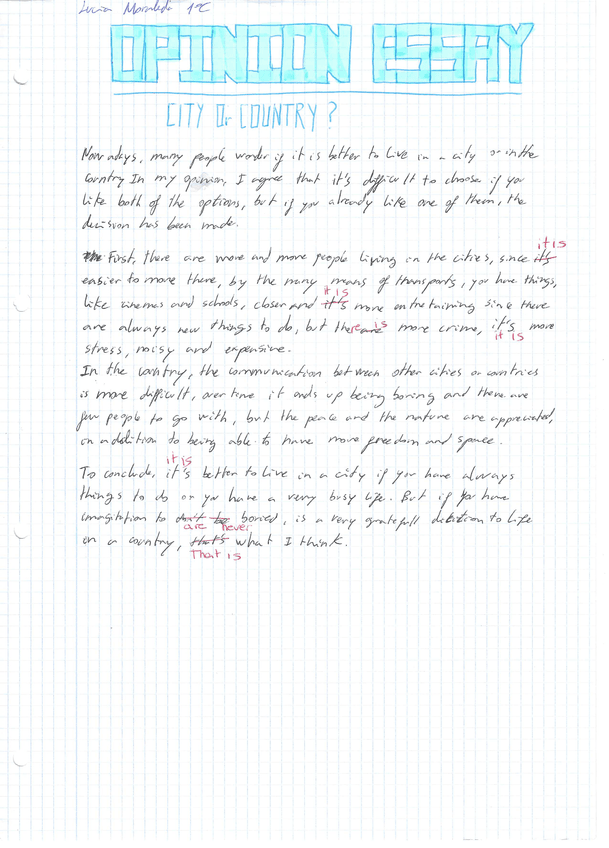 Lucía Moraleda 1ºC
OPINION ESSAY
CITY Or COUNTRY?
Nowadays, many people wonder if it is better to live in a city or in the
country In my opinion, I agree that it's difficult to choose if you
like both of the options, but if you already like one of them, the
decision has been made.
it is
First, there are more and more people living in the cities, since it's
easier to move there, by the many means of transports, you have things,
it is
like cinemas and schools, closer and it's more entretaining since there
are always new things to do, but there are is more crime, it's more
it is
stress, noisy and expensive.
In the country, the communication between other cities or countries
is more difficult, overtime it ends up being boring and there are
few people to go with, but the peace and the nature are appreciated,
in addition to being able to have more freedom and space.
it is
To conclude, it's better to live in a city if you have always
things to do or you have a very busy life. But if you have
imagitation to don't be boried, is a very gratefull to life
are never
in a country, that's what I think.
That is